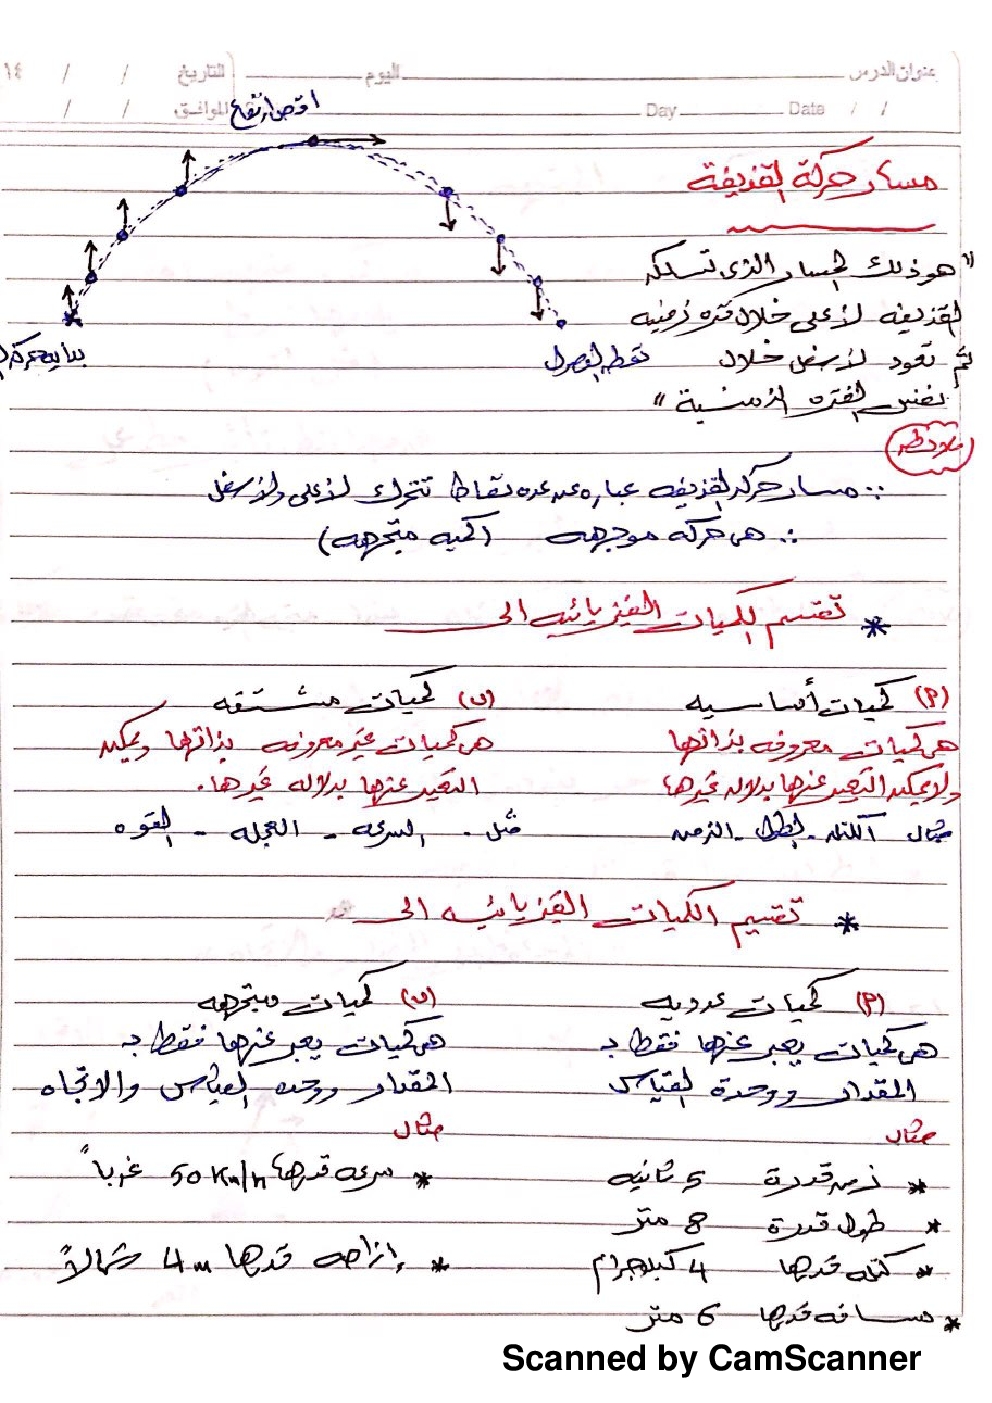 عنوان الدرس اليوم التاريخ / / ١٤
/ / Date Day الموافق / /
اقصى ارتفاع
مسار حركة القذيفة
"هو ذلك المسار الذى تسلكه
القذيفه لأعلى خلال فتره زمنيه
ثم تعود لأسفل خلال
نفس الفتره الزمنية"
نقطه الوصول
بدايه حركة
ملاحظه
∵ مسار حركه القذيفه عباره عن عده نقاط تتحرك لأعلى ولأسفل
∴ هى حركه موجهه (كميه متجهه)
* تقسم الكميات الفيزيائيه الى
(أ) كميات أساسيه (ب) كميات مشتقه
هى كميات معروفه بذاتها هى كميات غير معروفه بذاتها ويمكن
ولا يمكن التعبير عنها بدلاله غيرها التعبير عنها بدلاله غيرها.
مثال الكتله - الطول - الزمن مثل - السرعه - العجله - القوه
* تقسيم الكميات الفيزيائيه الى
(أ) كميات عدديه (ب) كميات متجهه
هى كميات يعبر عنها فقط بـ هى كميات يعبر عنها فقط بـ
المقدار ووحدة القياس المقدار ووحده القياس والاتجاه
مثال مثال
* زمن قدرة 5 ثانيه * سرعه قدرها 50 Km/h غرباً
* طول قدرة 8 متر
* كتله قدرها 4 كيلوجرام * إزاحه قدرها 4 m شمالاً
* مسافه قدرها 6 متر
Scanned by CamScanner